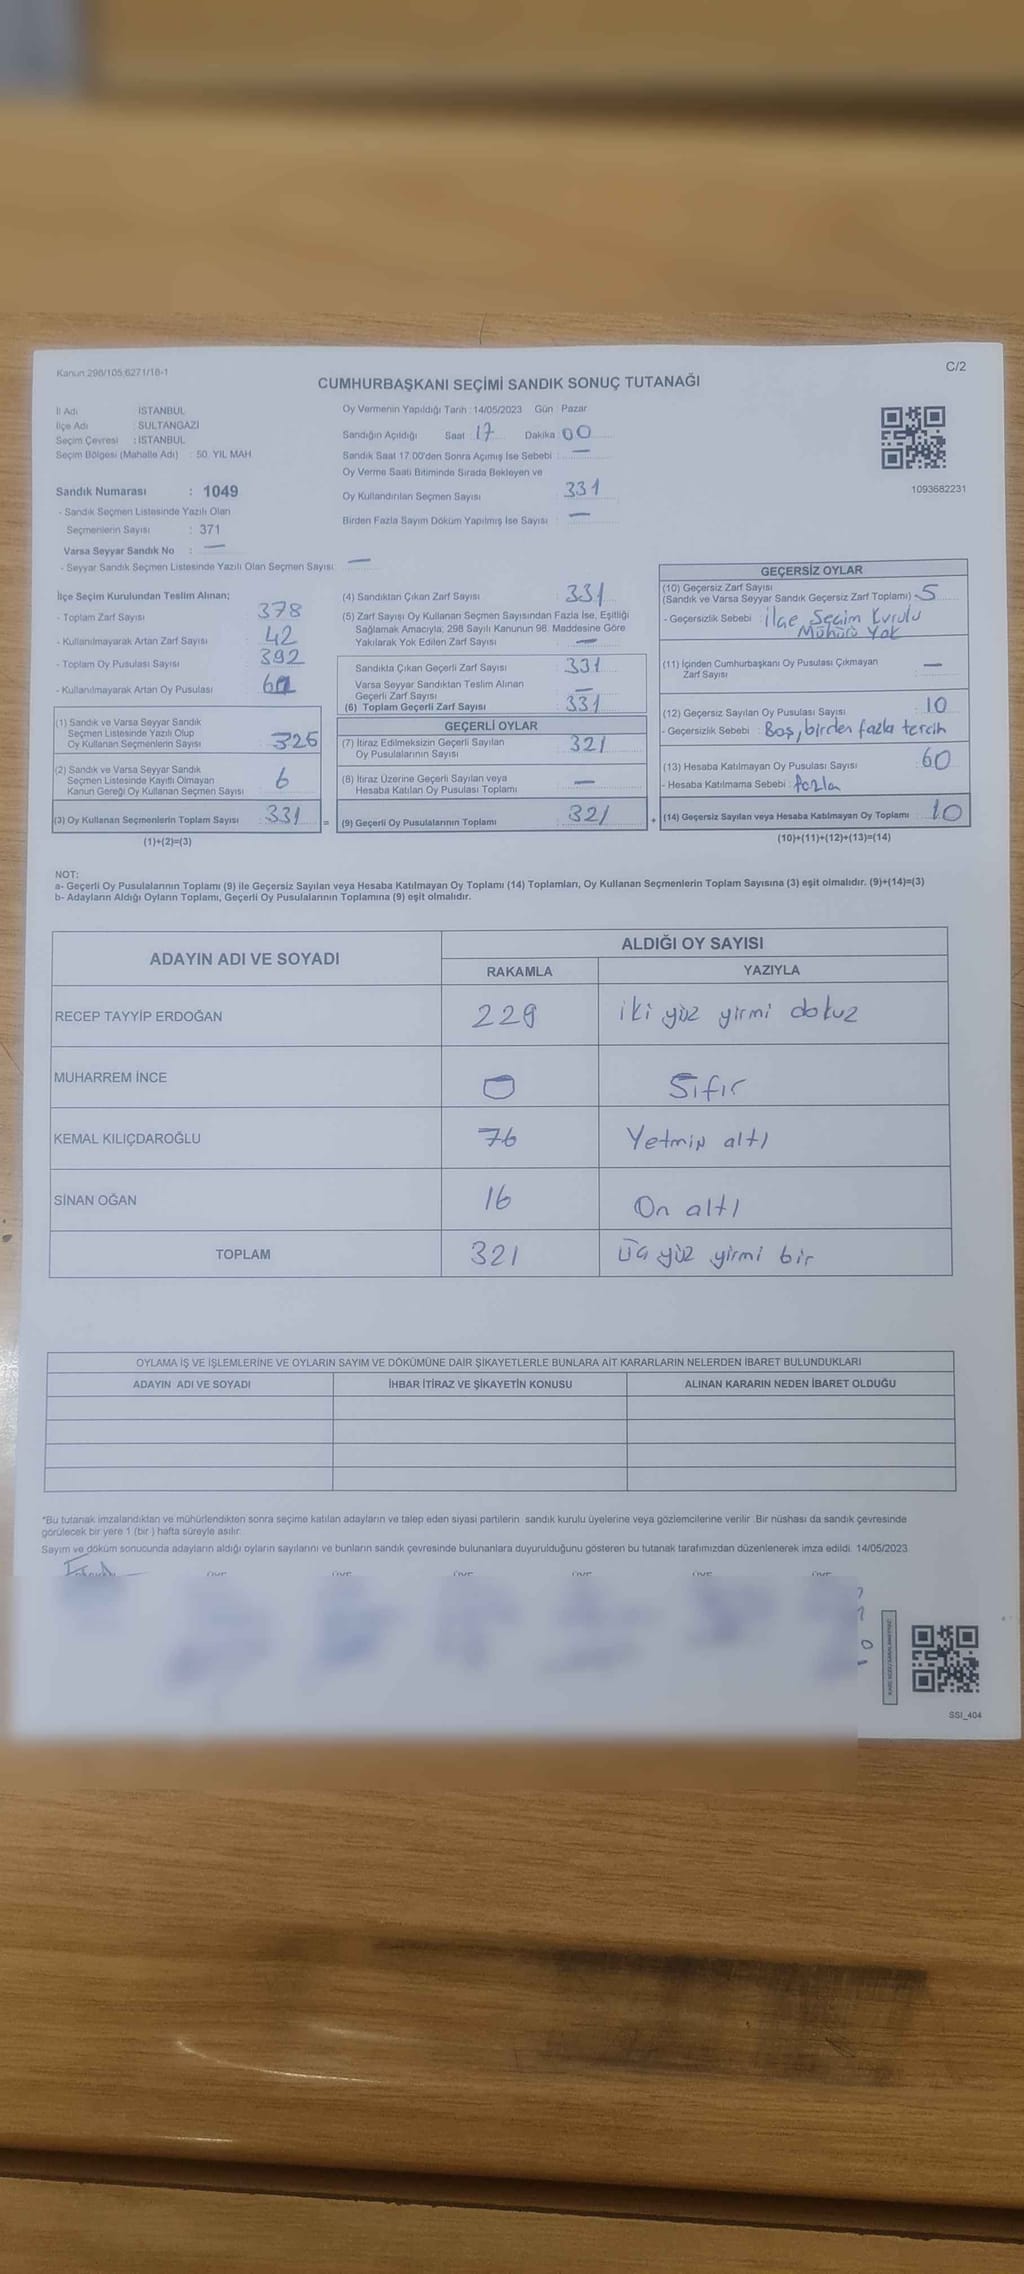 Kanun 298/105,6271/18-1
C/2
CUMHURBAŞKANI SEÇİMİ SANDIK SONUÇ TUTANAĞI
İl Adı : İSTANBUL
İlçe Adı : SULTANGAZİ
Seçim Çevresi : İSTANBUL
Seçim Bölgesi (Mahalle Adı) : 50. YIL MAH
Sandık Numarası : 1049
- Sandık Seçmen Listesinde Yazılı Olan
Seçmenlerin Sayısı : 371
Varsa Seyyar Sandık No : —
- Seyyar Sandık Seçmen Listesinde Yazılı Olan Seçmen Sayısı —
Oy Vermenin Yapıldığı Tarih : 14/05/2023 Gün Pazar
Sandığın Açıldığı Saat 17 Dakika 00
Sandık Saat 17.00'den Sonra Açımış İse Sebebi : —
Oy Verme Saati Bitiminde Sırada Bekleyen ve
Oy Kullandırılan Seçmen Sayısı 331
Birden Fazla Sayım Döküm Yapılmış İse Sayısı : —
1093682231
İlçe Seçim Kurulundan Teslim Alınan;
- Toplam Zarf Sayısı 378
- Kullanılmayarak Artan Zarf Sayısı 42
- Toplam Oy Pusulası Sayısı 392
- Kullanılmayarak Artan Oy Pusulası
(1) Sandık ve Varsa Seyyar Sandık
Seçmen Listesinde Yazılı Olup
Oy Kullanan Seçmenlerin Sayısı 325
(2) Sandık ve Varsa Seyyar Sandık
Seçmen Listesinde Kayıtlı Olmayan
Kanun Gereği Oy Kullanan Seçmen Sayısı 6
(3) Oy Kullanan Seçmenlerin Toplam Sayısı : 331 =
(1)+(2)=(3)
(4) Sandıktan Çıkan Zarf Sayısı 331
(5) Zarf Sayısı Oy Kullanan Seçmen Sayısından Fazla İse, Eşitliği
Sağlamak Amacıyla, 298 Sayılı Kanunun 98. Maddesine Göre
Yakılarak Yok Edilen Zarf Sayısı —
Sandıkta Çıkan Geçerli Zarf Sayısı 331
Varsa Seyyar Sandıktan Teslim Alınan
Geçerli Zarf Sayısı —
(6) Toplam Geçerli Zarf Sayısı 331
GEÇERLİ OYLAR
(7) İtiraz Edilmeksizin Geçerli Sayılan
Oy Pusulalarının Sayısı 321
(8) İtiraz Üzerine Geçerli Sayılan veya
Hesaba Katılan Oy Pusulası Toplamı —
(9) Geçerli Oy Pusulalarının Toplamı 321 +
GEÇERSİZ OYLAR
(10) Geçersiz Zarf Sayısı
(Sandık ve Varsa Seyyar Sandık Geçersiz Zarf Toplamı) 5
- Geçersizlik Sebebi : ilçe Seçim Kurulu
Mührü Yok
(11) İçinden Cumhurbaşkanı Oy Pusulası Çıkmayan
Zarf Sayısı —
(12) Geçersiz Sayılan Oy Pusulası Sayısı 10
- Geçersizlik Sebebi : Boş, birden fazla tercih
(13) Hesaba Katılmayan Oy Pusulası Sayısı 60
- Hesaba Katılmama Sebebi : fazla
(14) Geçersiz Sayılan veya Hesaba Katılmayan Oy Toplamı 10
(10)+(11)+(12)+(13)=(14)
NOT:
a- Geçerli Oy Pusulalarının Toplamı (9) ile Geçersiz Sayılan veya Hesaba Katılmayan Oy Toplamı (14) Toplamları, Oy Kullanan Seçmenlerin Toplam Sayısına (3) eşit olmalıdır. (9)+(14)=(3)
b- Adayların Aldığı Oyların Toplamı, Geçerli Oy Pusulalarının Toplamına (9) eşit olmalıdır.
ADAYIN ADI VE SOYADI
ALDIĞI OY SAYISI
RAKAMLA YAZIYLA
RECEP TAYYİP ERDOĞAN 229 iki yüz yirmi dokuz
MUHARREM İNCE 0 Sıfır
KEMAL KILIÇDAROĞLU 76 Yetmiş altı
SİNAN OĞAN 16 On altı
TOPLAM 321 üç yüz yirmi bir
OYLAMA İŞ VE İŞLEMLERİNE VE OYLARIN SAYIM VE DÖKÜMÜNE DAİR ŞİKAYETLERLE BUNLARA AİT KARARLARIN NELERDEN İBARET BULUNDUKLARI
ADAYIN ADI VE SOYADI İHBAR İTİRAZ VE ŞİKAYETİN KONUSU ALINAN KARARIN NEDEN İBARET OLDUĞU
*Bu tutanak imzalandıktan ve mühürlendikten sonra seçime katılan adayların ve talep eden siyasi partilerin sandık kurulu üyelerine veya gözlemcilerine verilir. Bir nüshası da sandık çevresinde
görülecek bir yere 1 (bir ) hafta süreyle asılır.
Sayım ve döküm sonucunda adayların aldığı oyların sayılarını ve bunların sandık çevresinde bulunanlara duyurulduğunu gösteren bu tutanak tarafımızdan düzenlenerek imza edildi. 14/05/2023
SSI_404